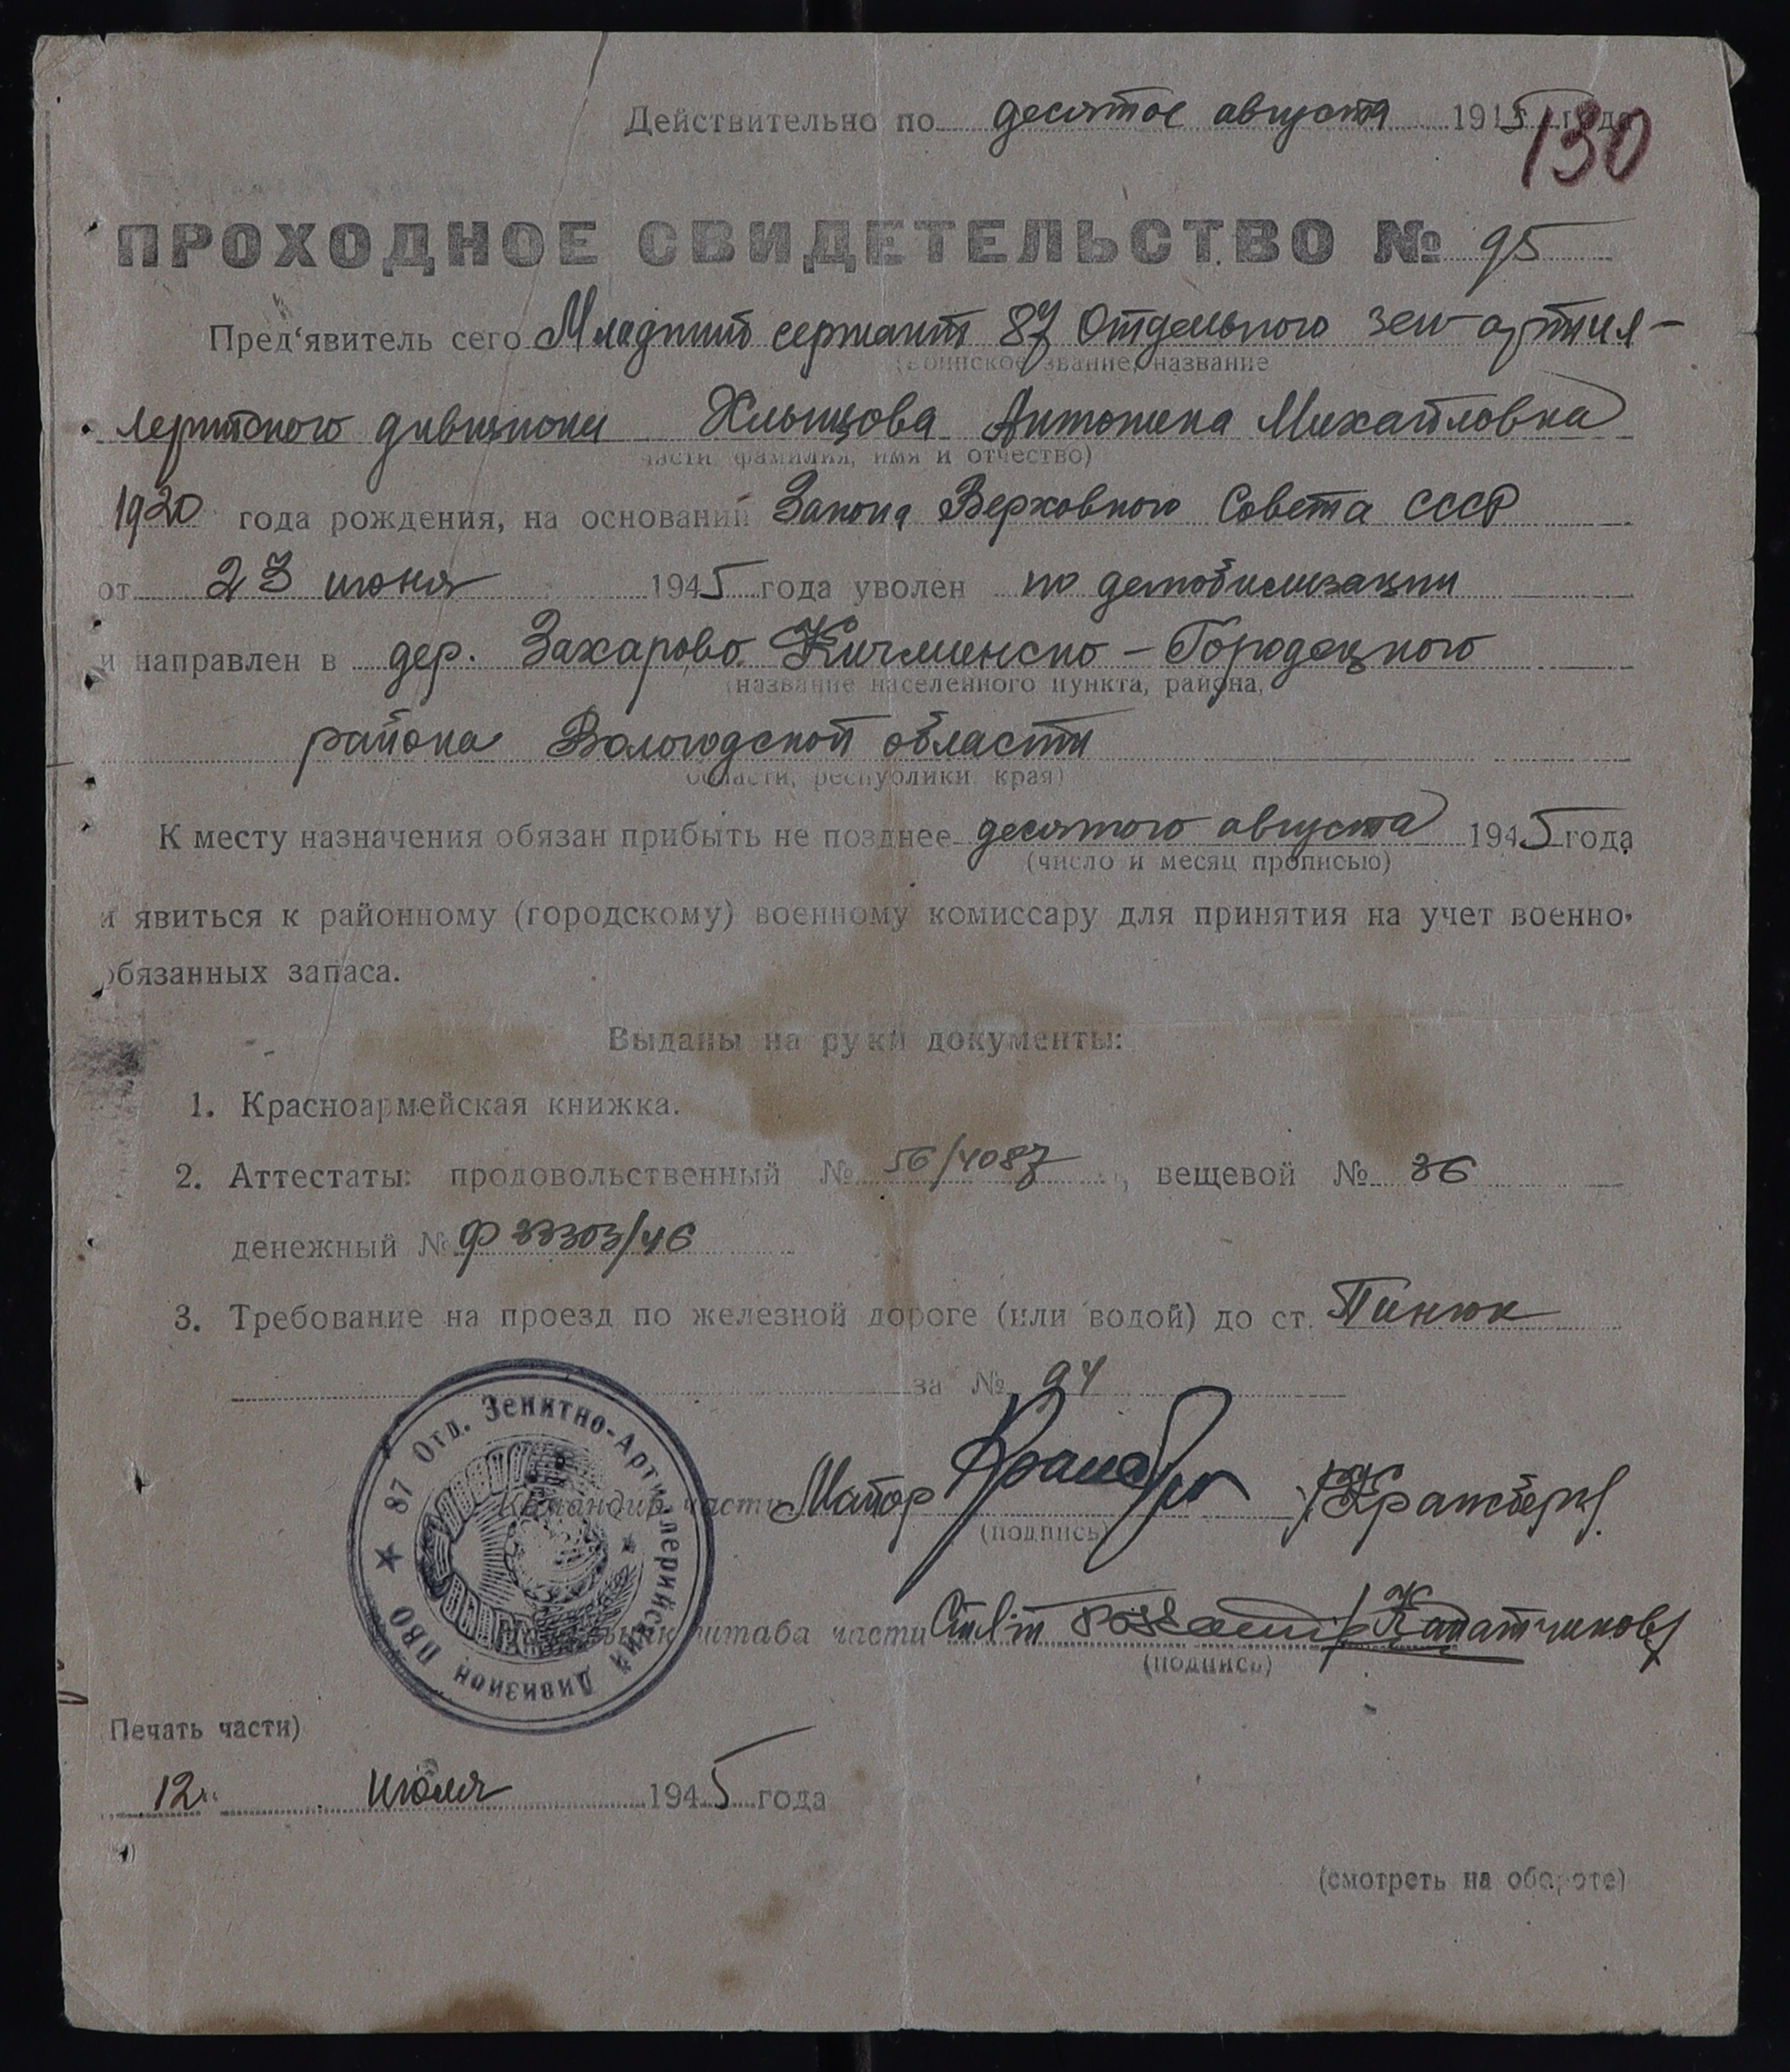 Действительно по десятое августа 1945 года
130
ПРОХОДНОЕ СВИДЕТЕЛЬСТВО № 95
Пред'явитель сего Младший сержант 87 Отдельного зен-артил-
(воинское звание, название
лерийского дивизиона Хлыщова Антонина Михайловна
части, фамилия, имя и отчество)
1920 года рождения, на основании Закона Верховного Совета СССР
от 23 июня 1945 года уволен по демобилизации
и направлен в дер. Захарово Кичменско-Городецкого
(название населенного пункта, района,
района Вологодской области
области, республики, края)
К месту назначения обязан прибыть не позднее десятого августа 1945 года
(число и месяц прописью)
и явиться к районному (городскому) военному комиссару для принятия на учет военно-
обязанных запаса.
Выданы на руки документы:
1. Красноармейская книжка.
2. Аттестаты: продовольственный № 56/4087, вещевой № 36
денежный № Ф 33303/46
3. Требование на проезд по железной дороге (или водой) до ст. Пинюк
за № 94
87 Отд. Зенитно-Артиллерийский Дивизион ПВО
Командир части Майор
(подпись)
Начальник штаба части Ст л-т
(подпись)
Печать части)
12 " июля 1945 года
(смотреть на обороте)